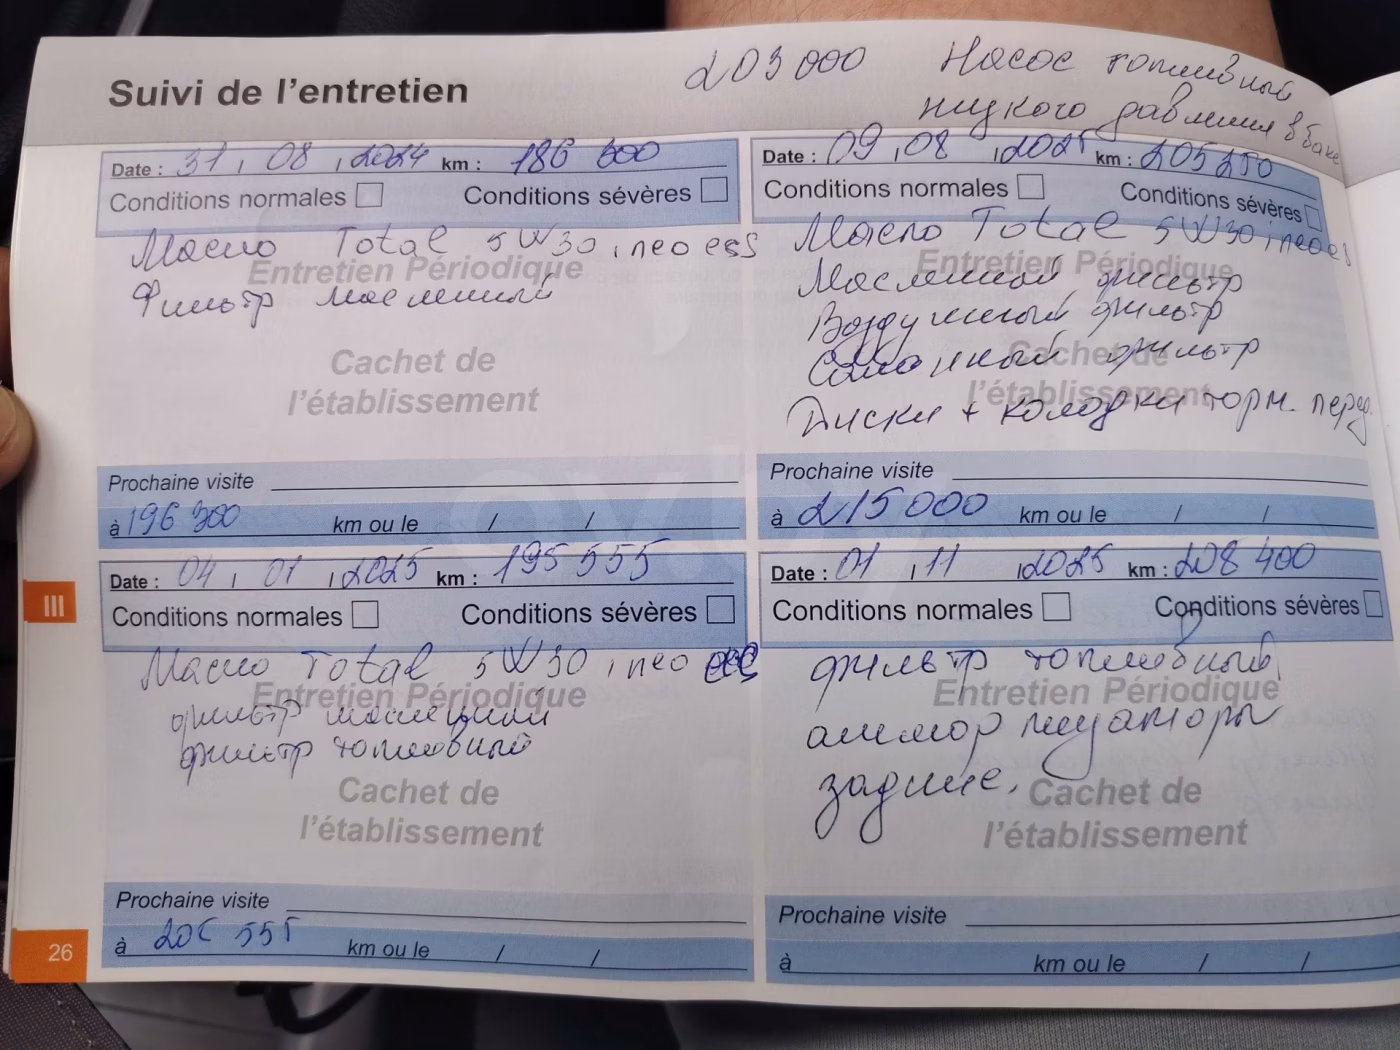 Suivi de l'entretien
203 000 Насос топливный
низкого давления в баке
Date : 31, 08, 2024 km : 186 600
Conditions normales Conditions sévères
Масло Total 5W30, ineo ess
Entretien Périodique
Фильтр масленный
Cachet de
l'établissement
Prochaine visite
à 196 300 km ou le / /
Date : 09, 08, 2025 km : 205 250
Conditions normales Conditions sévères
Масло Total 5W30, ineo es
Entretien Périodique
Масленный фильтр
Воздушный фильтр
Салонный фильтр
Cachet de
l'établissement
Диски + колодки торм. перед.
Prochaine visite
à 215 000 km ou le / /
III
Date : 04, 01, 2025 km : 195 555
Conditions normales Conditions sévères
Масло Total 5W30, ineo
Entretien Périodique
фильтр масленный
фильтр топливный
Cachet de
l'établissement
Prochaine visite
à 205 555 km ou le / /
Date : 01, 11, 2025 km : 208 400
Conditions normales Conditions sévères
фильтр топливный
Entretien Périodique
аммортизаторы
задние.
Cachet de
l'établissement
Prochaine visite
à km ou le / /
26